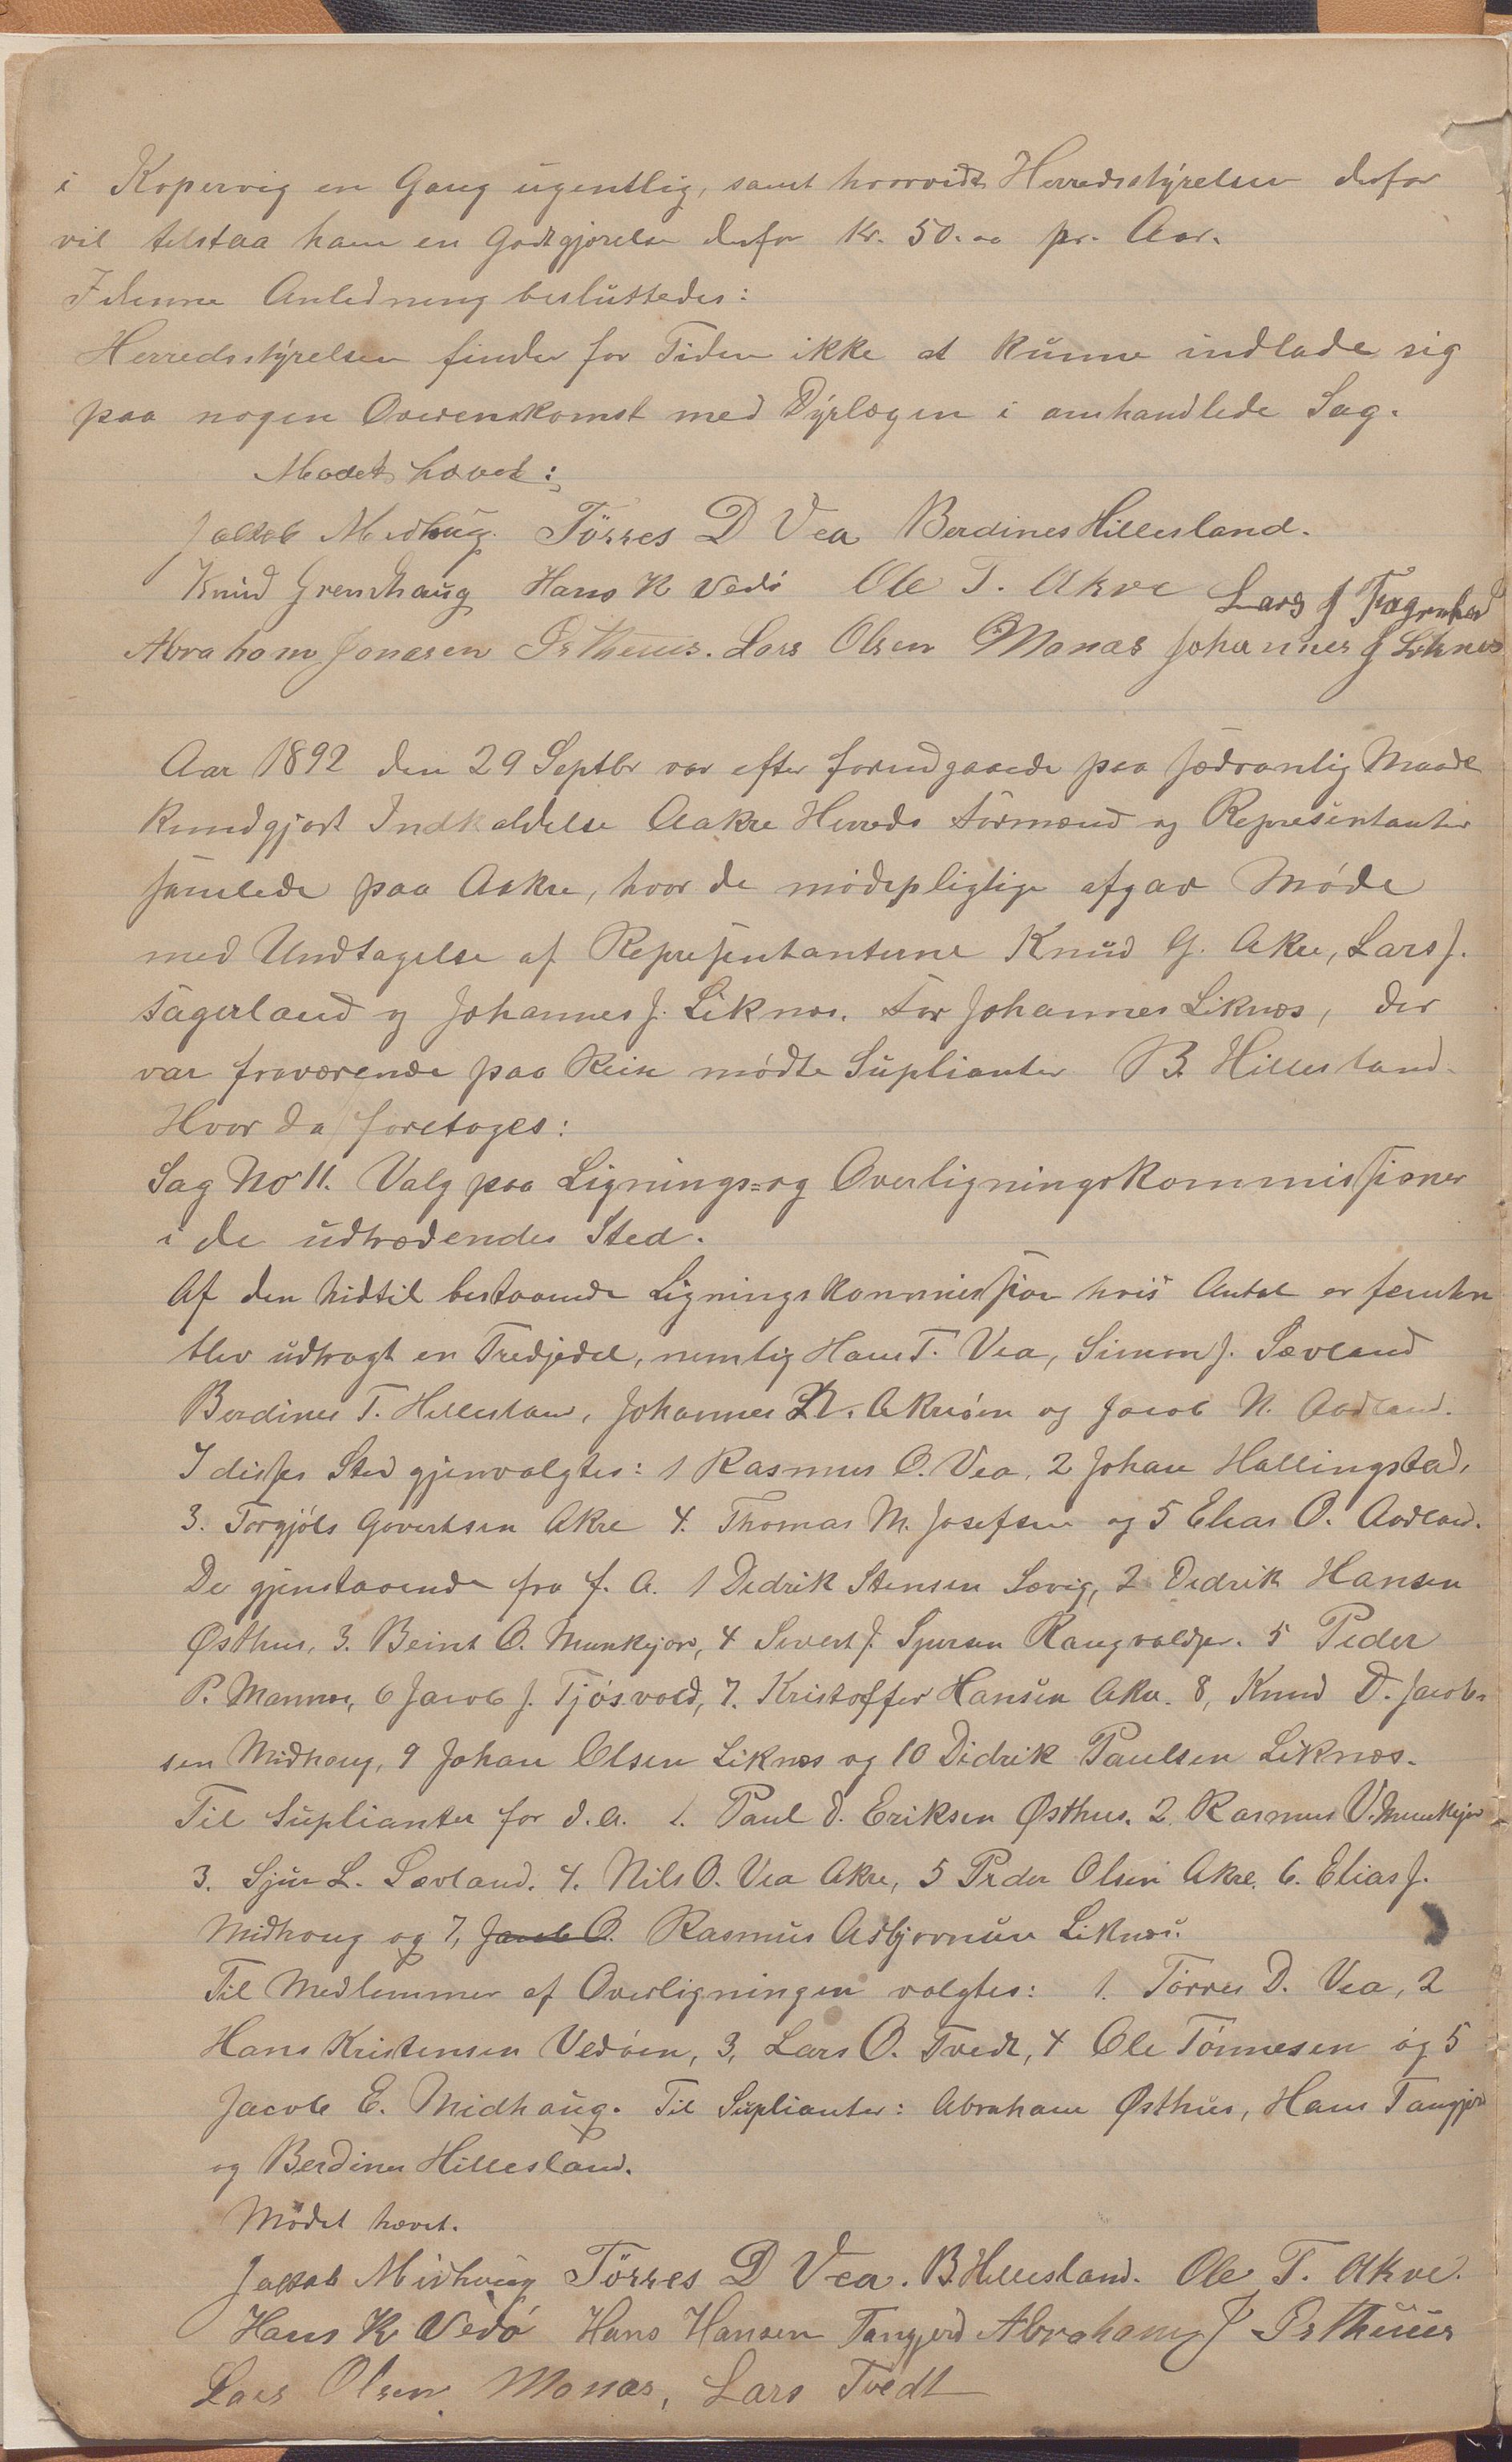 i Kopervig en Gang ugentlig, samt hvorvidt Herredsstyrelsen derfor
vil tilstaa ham en Godtgjørelse derfor Kr. 50.00 pr. Aar.
I denne Anledning besluttedes:
Herredsstyrelsen finder for Tiden ikke at kunne indlade sig
paa nogen Overenskomst med Dyrlægen i omhandlede Sag.
Mødet hævet:
Jakob Midhug. Törres D Vea Berdines Hillesland.
Knud Grenshaug Hans K Vedø Ole T. Akre Lars J Fagerland
Abraham Jonasen Østhuus. Lars Olsen Monas Johannes J Liknes
Aar 1892 den 29 Septbr var efter forudgaaende paa sædvanlig Maade
kundgjort Indkaldelse Aakre Herreds Formænd og Representanter
samlede paa Aakre, hvor de mødepligtige afgav Møde
med Undtagelse af Representanterne Knud G. Akre, Lars J.
Fagerland og Johannes J. Liknes. For Johannes Liknæs, der
var fraværende paa Reise mødte Suplianten B. Hillesland.
Hvor da foretoges:
Sag No 11. Valg paa Lignings- og Overligningskommissioner
i de udtrædendes Sted.
Af den hidtil bestaaende Ligningskommission hvis Antal er femten
blev udtragt en Tredjedel, nemlig Hans T. Vea, Simon J. Sævland
Berdines T. Hillesland, Johannes N. Akreøen og Jacob N. Aadland.
I disses Sted gjenvalgtes: 1 Rasmus O. Vea, 2 Johan Hallingstad,
3. Torgjøls Govertsen Akre 4. Thomas M. Josefsen og 5 Elias O. Aadland.
De gjenstaaende fra f. A. 1 Didrik Stensen Sævig, 2 Didrik Hansen
Østhus, 3. Beint O. Munkejor, 4 Sivert J. Sjursen Rangvaldsr. 5 Peder
P. Mannes, 6 Jacob J. Tjøsvold, 7. Kristoffer Hansen Akre. 8, Knud D. Jacob-
sen Midhaug, 9 Johan Olsen Liknæs og 10 Didrik Paulsen Liknæs.
Til Suplianter for d. A. 1. Paul D. Eriksen Østhus. 2. Rasmus V. Munkejor
3. Sjur L. Sævland. 4. Nils O. Vea Akre, 5 Peder Olsen Akre. 6. Elias J.
Midhaug og 7, Jacob O. Rasmus Asbjørnsen Liknæs.
Til Medlemmer af Overligningen valgtes: 1. Tørres D. Vea, 2
Hans Kristensen Vedøen, 3, Lars O. Tvedt, 4 Ole Tønnesen og 5
Jacob E. Midhaug. Til Suplianter: Abraham Østhus, Hans Tangjerd
og Berdines Hillesland.
Mødet hævet.
Jakob Midhug Törres D Vea. B. Hillesland. Ole T. Akre.
Hans K Vedø Hans Hansen Tangjerd Abraham J Østhuus
Lars Olsen Monas, Lars Tvedt